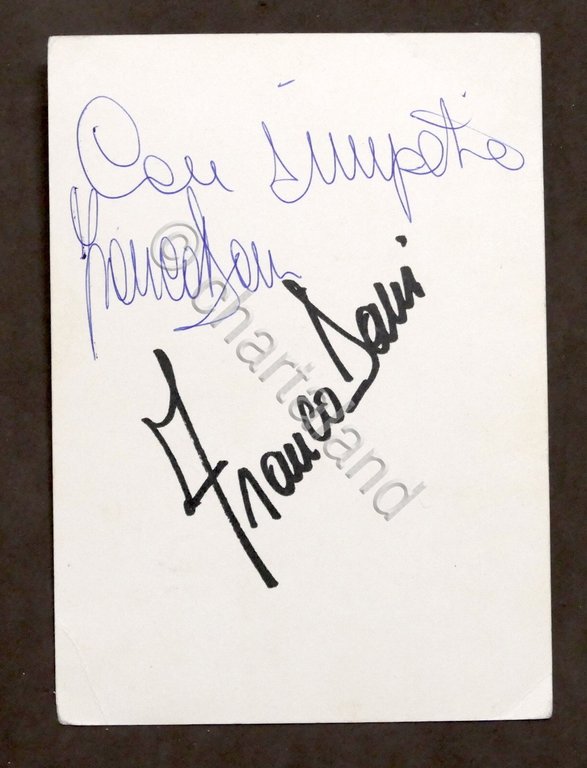 Con simpatia
Franco Dani
Franco Dani
© chartaland